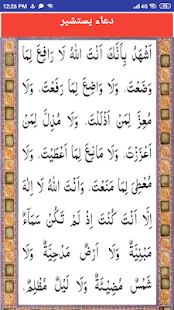 12:26 PM
4G
دعاء یستشیر
اَشْهَدُ بِاَنَّكَ اَنْتَ اللهُ لَا رَافِعَ لِمَا
وَضَعْتَ، وَلَا وَاضِعَ لِمَا رَفَعْتَ، وَلَا
مُعِزَّ لِمَنْ اَذْلَلْتَ، وَلَا مُذِلَّ لِمَنْ
اَعْزَزْتَ، وَلَا مَانِعَ لِمَا اَعْطَيْتَ، وَلَا
مُعْطِیَ لِمَا مَنَعْتَ، وَاَنْتَ اللهُ لَا اِلٰهَ
اِلَّا اَنْتَ كُنْتَ اِذْ لَمْ تَكُنْ سَمَآءٌ
مَبْنِيَّةٌ وَلَا اَرْضٌ مَدْحِيَّةٌ وَلَا
شَمْسٌ مُضِيْئَةٌ وَلَا لَيْلٌ مُظْلِمٌ،